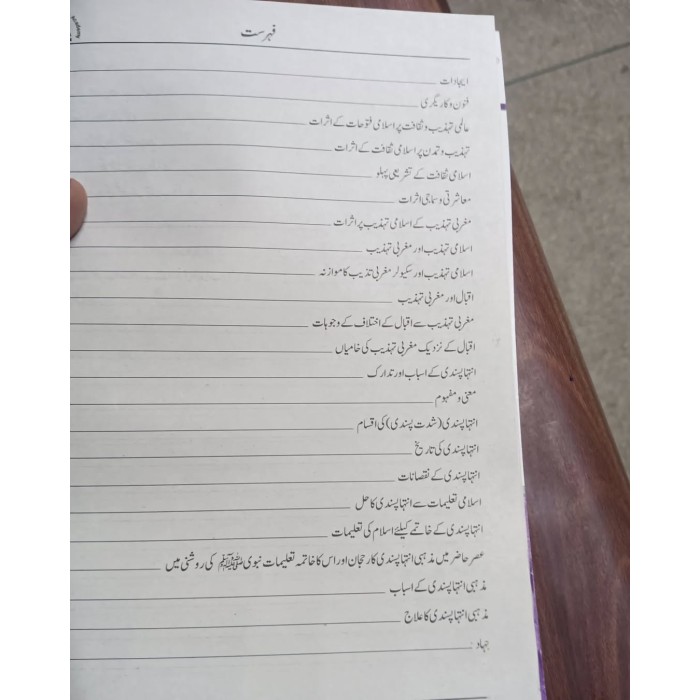 فہرست
ایجادات
فنون و کاریگری
عالمی تہذیب و ثقافت پر اسلامی فتوحات کے اثرات
تہذیب و تمدن پر اسلامی ثقافت کے اثرات
اسلامی ثقافت کے تشریعی پہلو
معاشرتی و سماجی اثرات
مغربی تہذیب کے اسلامی تہذیب پر اثرات
اسلامی تہذیب اور مغربی تہذیب
اسلامی تہذیب اور سیکولر مغربی تذیب کا موازنہ
اقبال اور مغربی تہذیب
مغربی تہذیب سے اقبال کے اختلاف کے وجوہات
اقبال کے نزدیک مغربی تہذیب کی خامیاں
انتہا پسندی کے اسباب اور تدارک
معنی و مفہوم
انتہا پسندی (شدت پسندی) کی اقسام
انتہا پسندی کی تاریخ
انتہا پسندی کے نقصانات
اسلامی تعلیمات سے انتہا پسندی کا حل
انتہا پسندی کے خاتمے کیلئے اسلام کی تعلیمات
عصر حاضر میں مذہبی انتہا پسندی کا رجحان اور اس کا خاتمہ تعلیمات نبوی ﷺ کی روشنی میں
مذہبی انتہا پسندی کے اسباب
مذہبی انتہا پسندی کا علاج
جہاد: